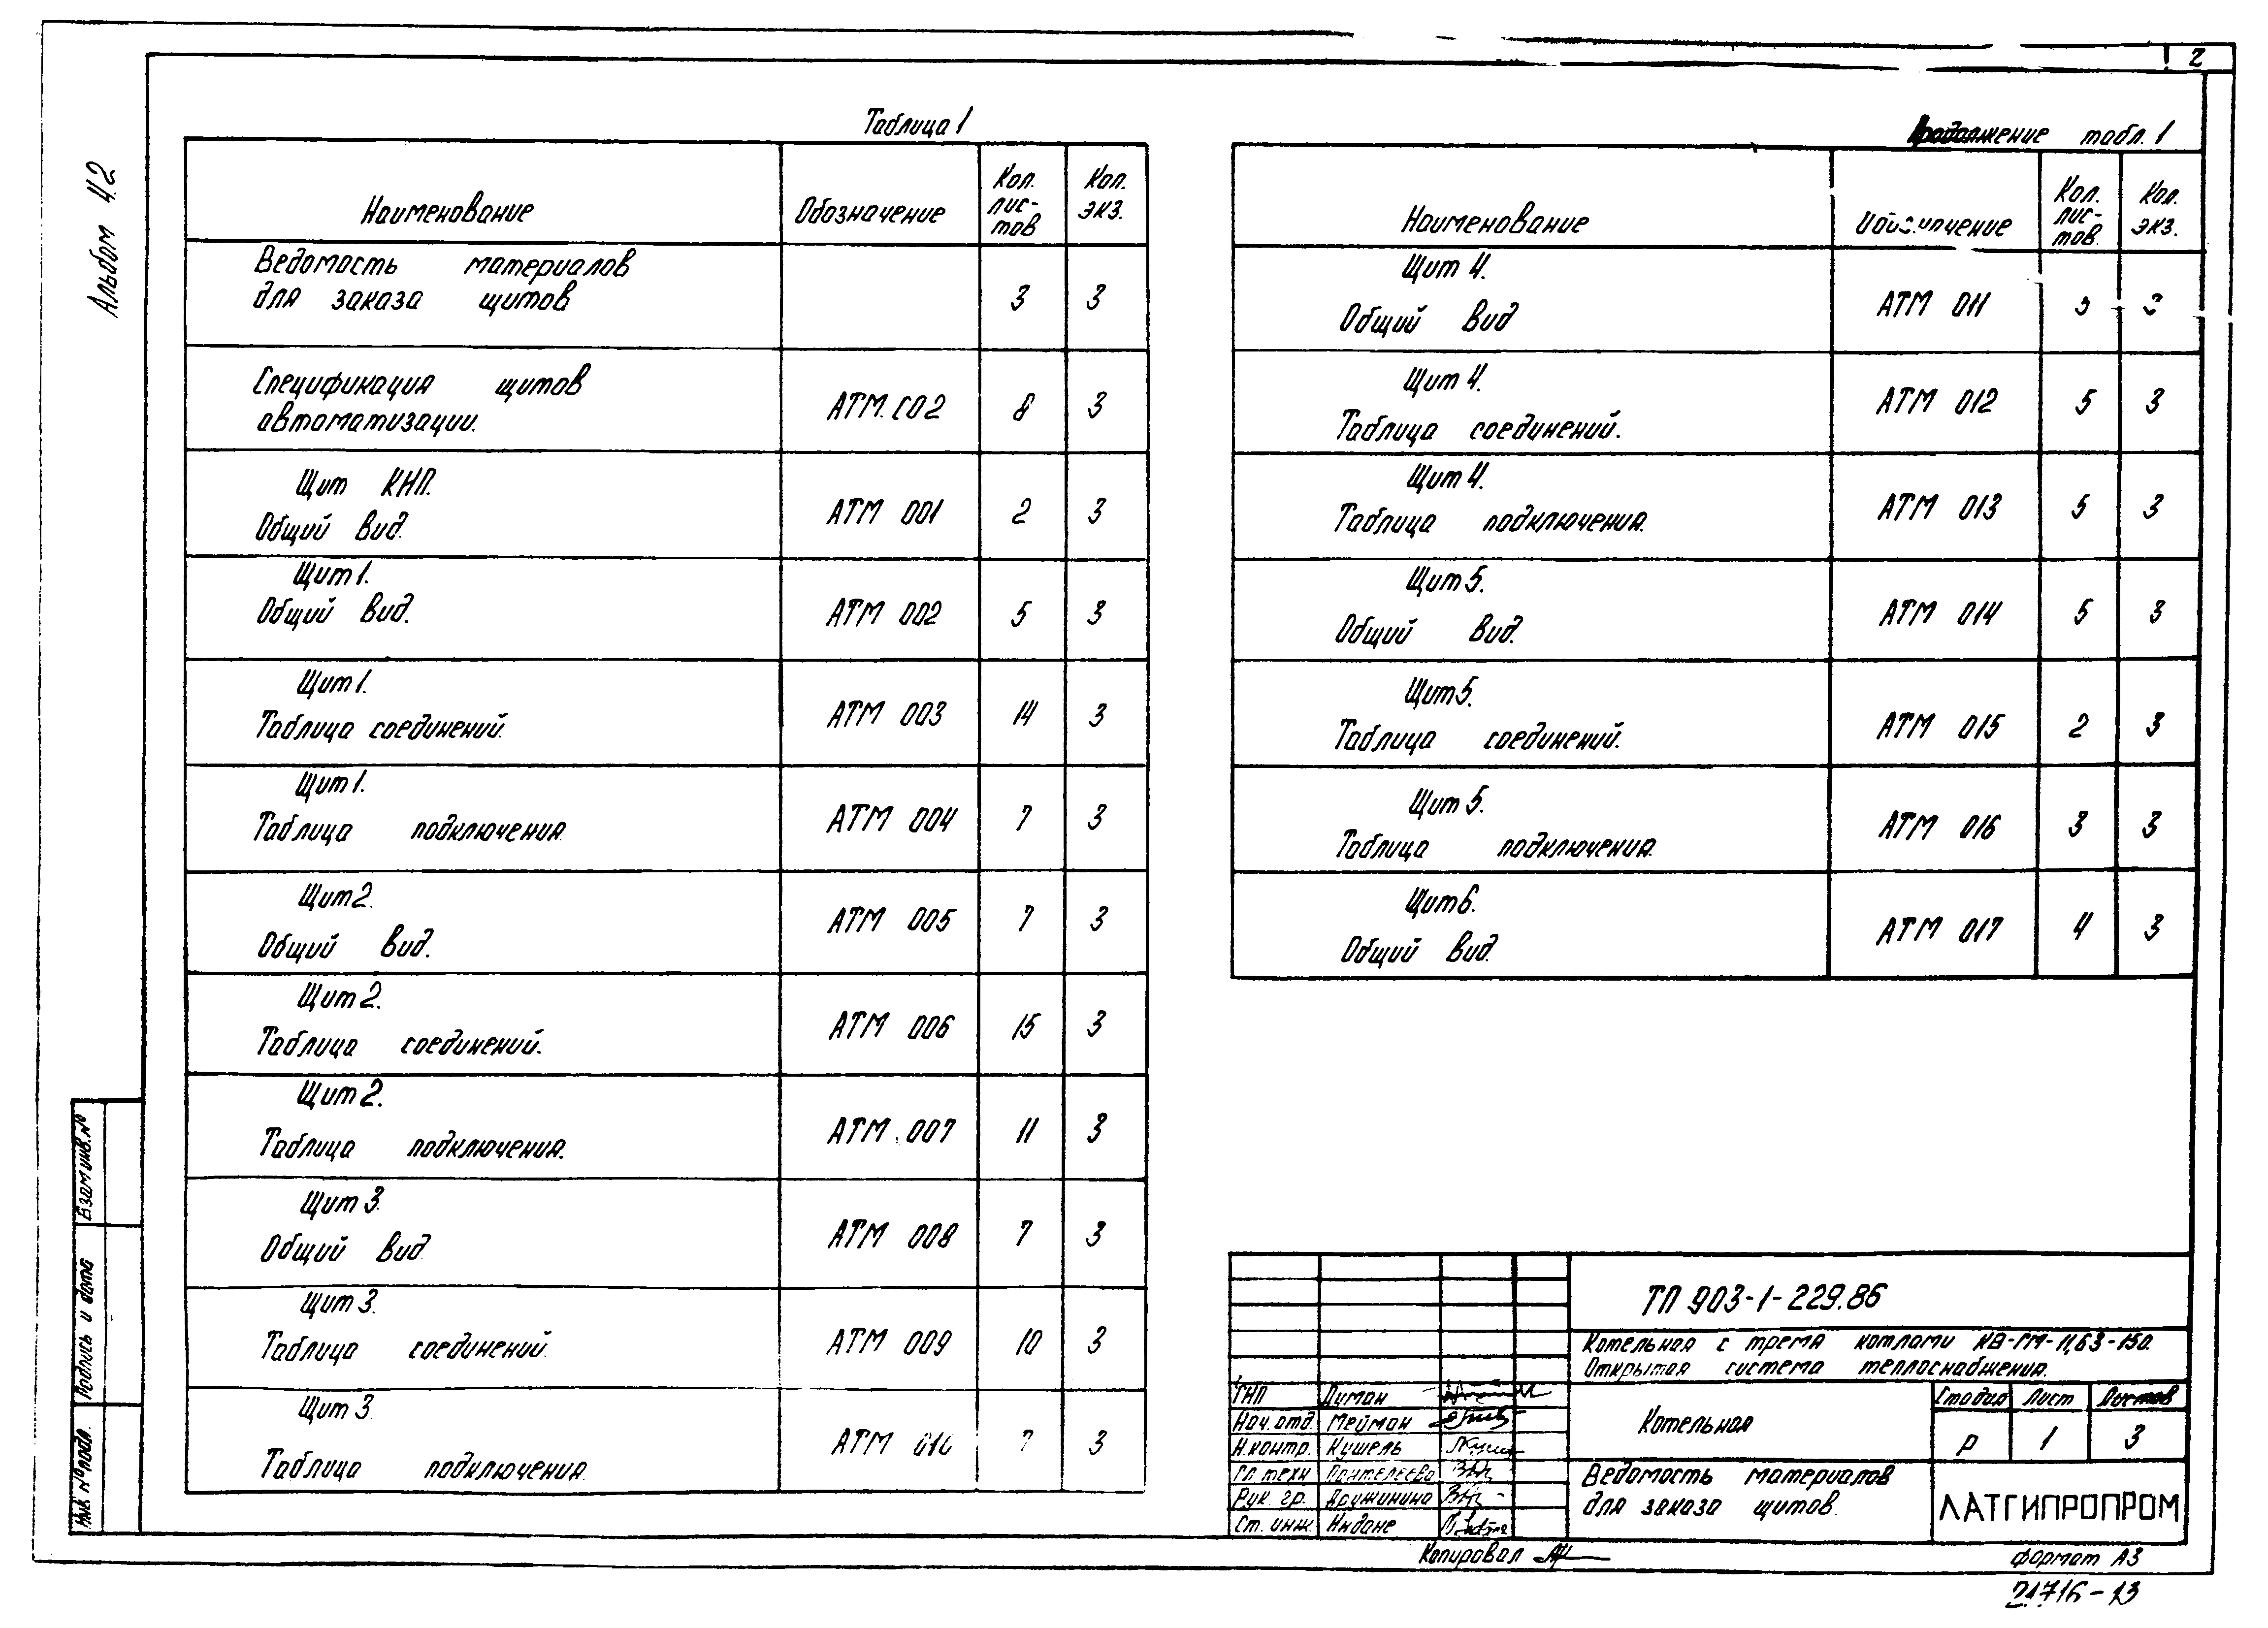 2
Альбом 4.2
Таблица 1
Наименование Обозначение Кол. лис-тов Кол. экз.
Ведомость материалов
для заказа щитов 3 3
Спецификация щитов
автоматизации. АТМ.СО2 8 3
Щит КНП.
Общий вид. АТМ 001 2 3
Щит 1.
Общий вид. АТМ 002 5 3
Щит 1.
Таблица соединений. АТМ 003 14 3
Щит 1.
Таблица подключения. АТМ 004 7 3
Щит 2.
Общий вид. АТМ 005 7 3
Щит 2.
Таблица соединений. АТМ 006 15 3
Щит 2.
Таблица подключения. АТМ 007 11 3
Щит 3.
Общий вид АТМ 008 7 3
Щит 3.
Таблица соединений. АТМ 009 10 3
Щит 3.
Таблица подключения. АТМ 010 7 3
Продолжение табл. 1
Наименование Обозначение Кол. лис-тов. Кол. экз.
Щит 4.
Общий вид АТМ 011 3
Щит 4.
Таблица соединений. АТМ 012 5 3
Щит 4.
Таблица подключения. АТМ 013 5 3
Щит 5.
Общий вид. АТМ 014 5 3
Щит 5.
Таблица соединений. АТМ 015 2 3
Щит 5.
Таблица подключения. АТМ 016 3 3
Щит 6.
Общий вид. АТМ 017 4 3
Взам инв. №
Подпись и дата
Инв. № подл.
ТП 903-1-229.86
Котельная с тремя котлами КВ-ГМ-11,63-150.
Открытая система теплоснабжения.
ГИП Думан
Нач. отд. Мейман
Н.контр. Кушель
Гл техн Пантелеева
Рук. гр. Дружинина
Ст. инж. Индане
Котельная
Стадия Лист Листов
Р 1 3
Ведомость материалов
для заказа щитов.
ЛАТГИПРОПРОМ
Копировал
формат А3
21716-13